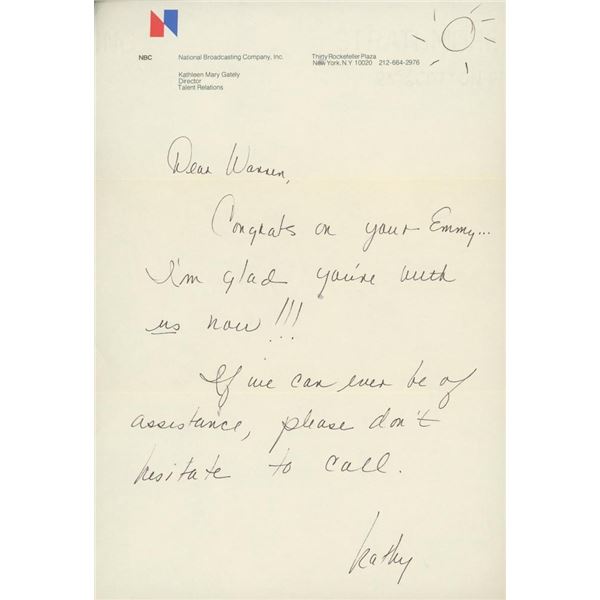 NBC National Broadcasting Company, Inc. Thirty Rockefeller Plaza
New York, N.Y. 10020 212-664-2976
Kathleen Mary Gately
Director
Talent Relations
Dear Warren,
Congrats on your Emmy...
I'm glad you're with
us now!!!
If we can ever be of
assistance, please don't
hesitate to call.
Kathy